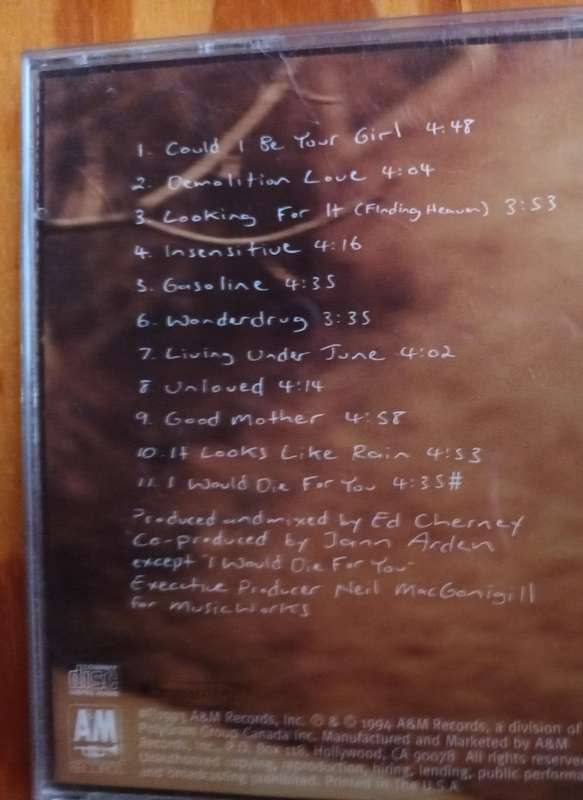 1. Could I Be Your Girl 4:48
2. Demolition Love 4:04
3. Looking For It (Finding Heaven) 3:53
4. Insensitive 4:16
5. Gasoline 4:35
6. Wonderdrug 3:35
7. Living Under June 4:02
8 Unloved 4:14
9. Good Mother 4:58
10. It Looks Like Rain 4:53
11. I Would Die For You 4:35#
Produced and mixed by Ed Cherney
Co-produced by Jann Arden
except "I Would Die For You"
Executive Producer Neil MacGonigill
for MusicWorks
COMPACT
disc
A&M
RECORDS
A&M Records, Inc. ℗ & © 1994 A&M Records, a division of
PolyGram Group Canada Inc. Manufactured and Marketed by A&M
Records, Inc., P.O. Box 118, Hollywood, CA 90078 All rights reserve
Unauthorized copying, reproduction, hiring, lending, public perform
and broadcasting prohibited. Printed in The U.S.A.